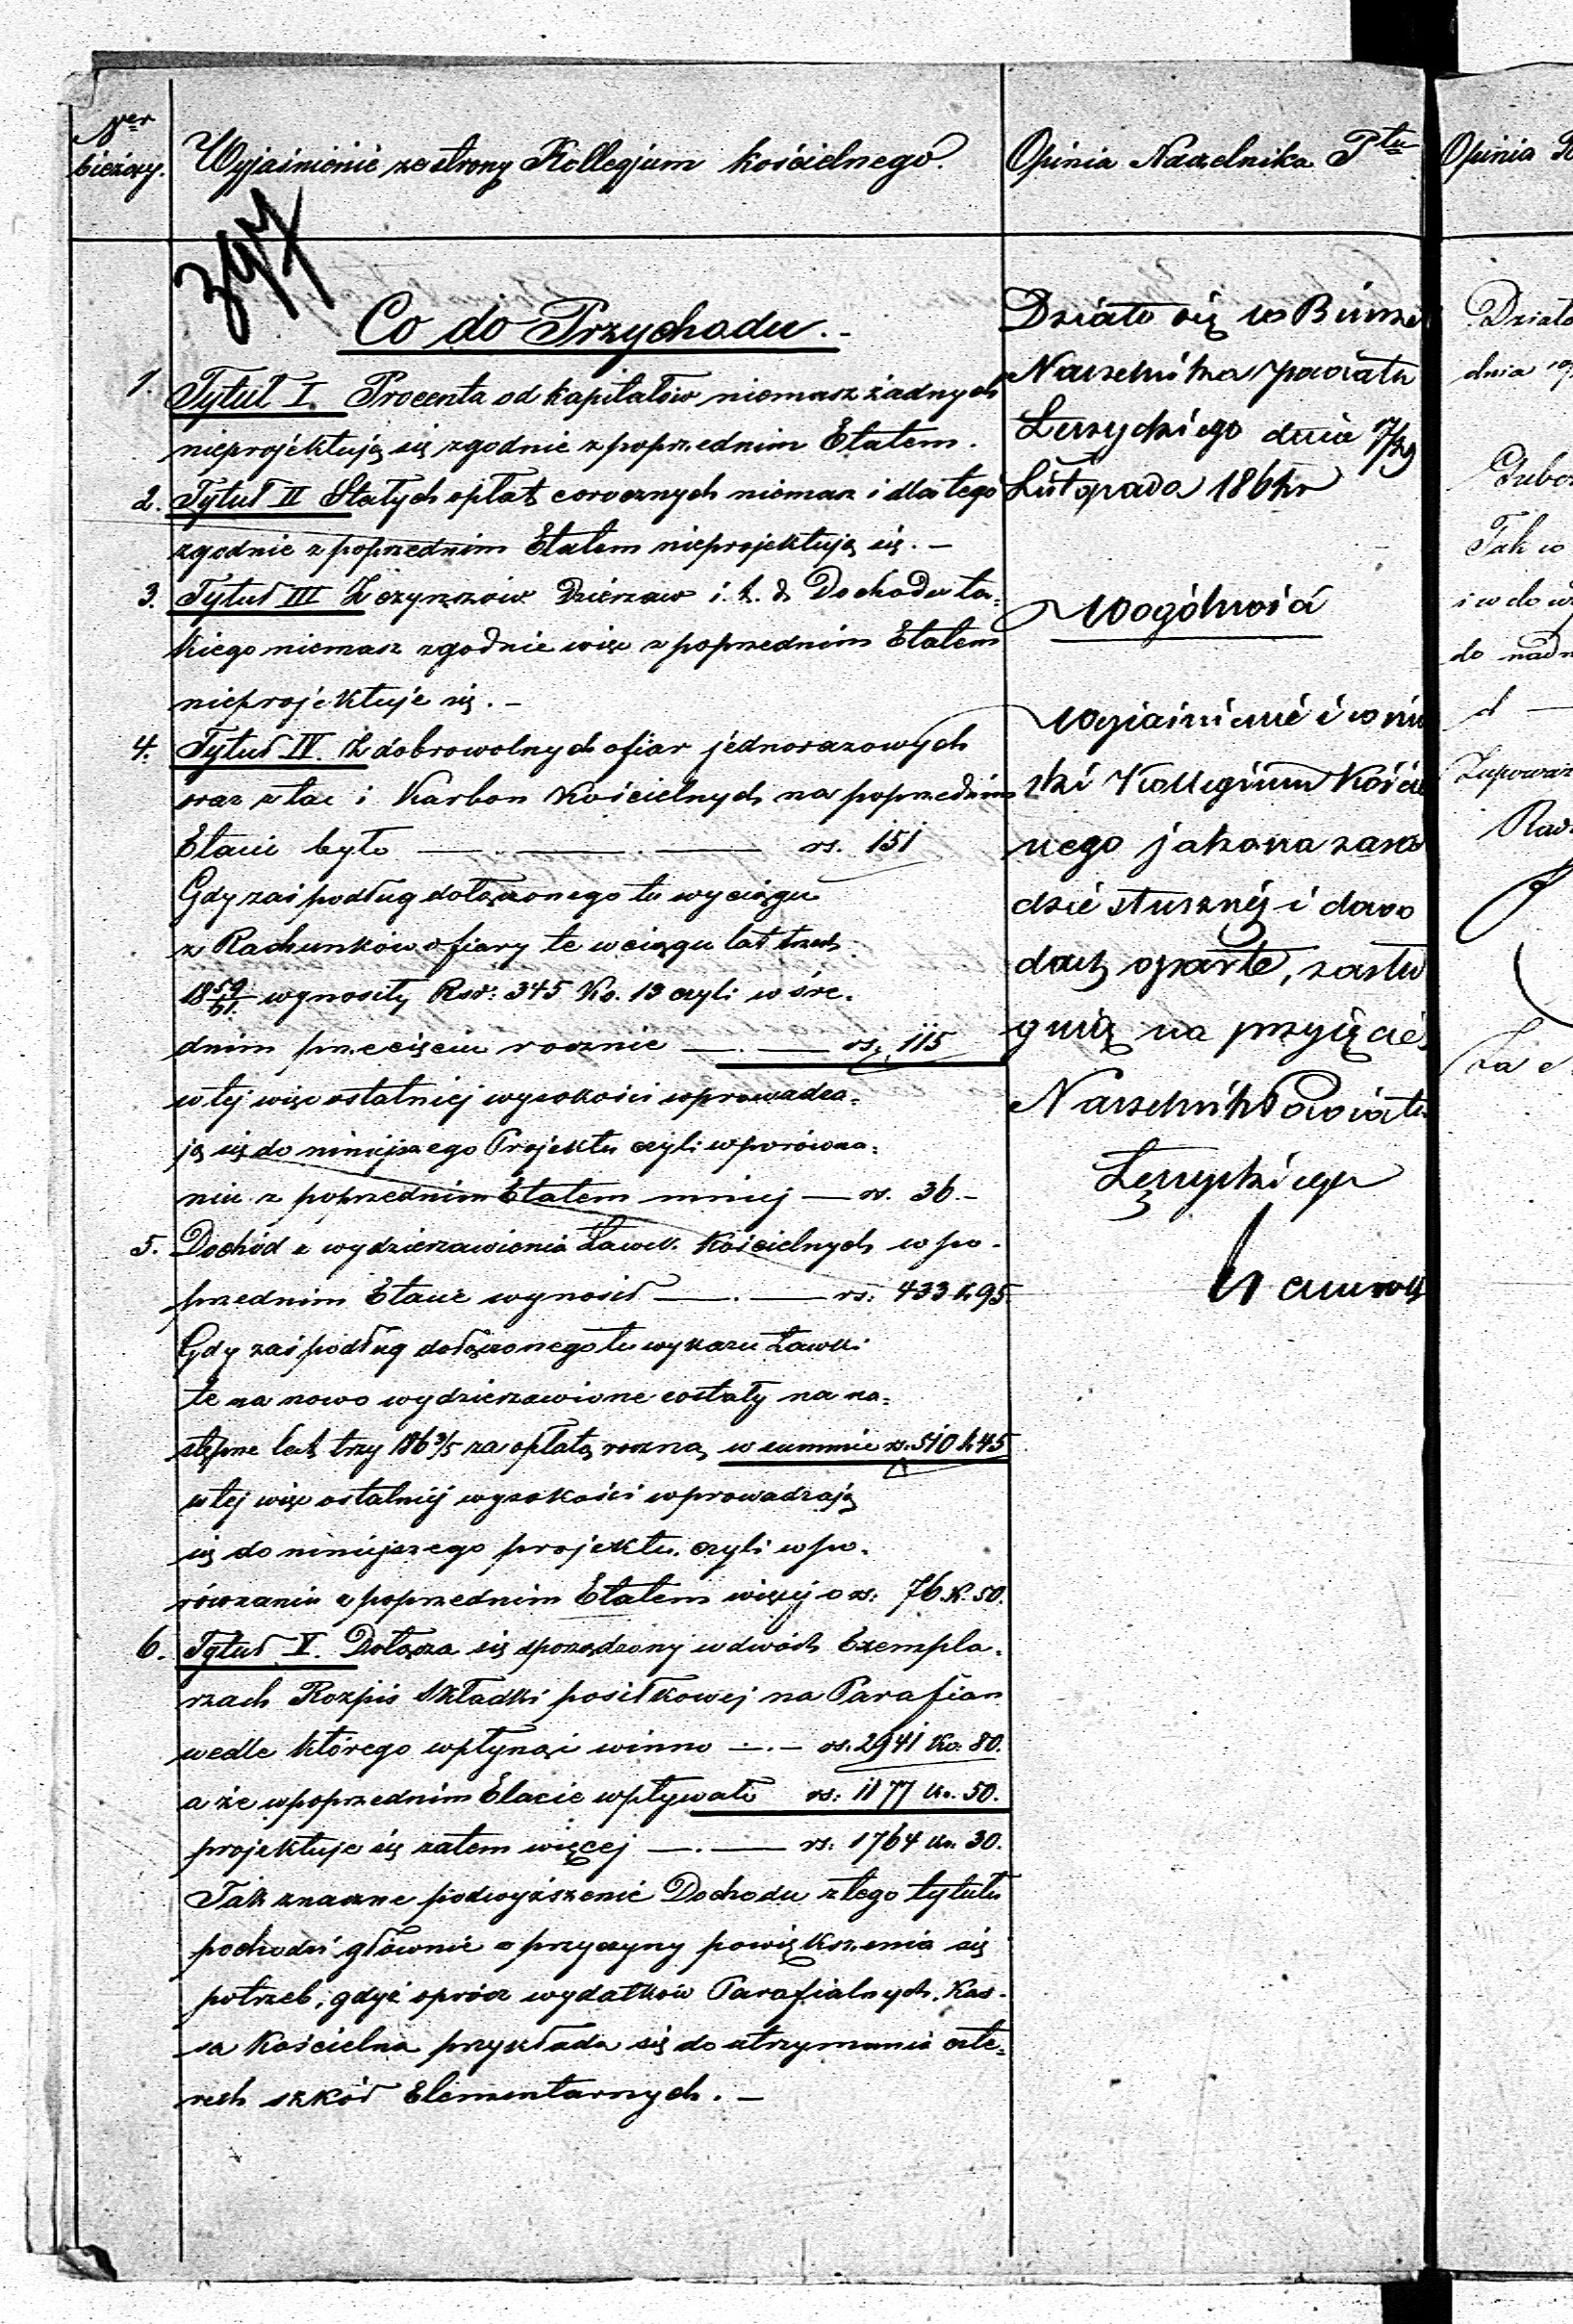 Ner
bieżący.
Wyjaśnienie ze strony Kollegjum kościelnego.
Opinia Naczelnika Ptu
Opinia
397
Co do Przychodu.-
1. Tytuł I. Procenta od kapitałów niemasz żadnych
nieprojektują się zgodnie z poprzednim Etatem.
2. Tytuł II Stałych opłat corocznych niemasz i dla tego
zgodnie z poprzednim Etatem nieprojektują się.-
3. Tytuł III Z czynszów Dzierżaw i.t.d. Dochodu ta=
kiego niemasz zgodnie więc z poprzednim Etatem
nieprojektuje się.-
4. Tytuł IV. Z dobrowolnych ofiar jednorazowych
oraz z tac i Karbon Kościelnych na poprzednim
Etacie było —.—.— rs. 151
Gdy zaś podług dołączonego tu wyciągu
z Rachunków ofiary te w ciągu lat trzech
18 59/61. wynosiły Rsr: 345 Ko. 13 czyli w śre=
dnim przecięciu rocznie —.— rs: 115
w tej więc ostatniej wysokości wprowadza=
ją się do niniejszego Projektu czyli w porówna=
niu z poprzednim Etatem mniej — rs. 36.-
5. Dochód z wydzierżawienia Ławek Kościelnych w po-
przednim Etacie wynosił —.— rs: 433 k 95.
Gdy zaś podług dołączonego tu wykazu Ławki
te na nowo wydzierżawione zostały na na=
stępne lat trzy 186 3/5 za opłatą roczną w summie rs. 510 k 45
w tej więc ostatniej wysokości wprowadzają
się do niniejszego projektu czyli w po=
równaniu z poprzednim Etatem więcej o rs: 76 K. 50.
6. Tytuł V. Dołącza się sporządzony w dwóch Exempla=
rzach Rozpis Składki posiłkowej na Parafian
wedle którego wpłynąć winno —.— rs. 2941 Ko. 80.
a że w poprzednim Etacie wpływało rs: 1177 Ko. 50.
projektuje się zatem więcej —.— rs: 1764 Ko. 30.
Tak znaczne podwyższenie Dochodu z tego tytułu
pochodzi głównie z przyczyny powiększenia się
potrzeb, gdyż oprócz wydatków Parafialnych, Kas-
sa Kościelna przykłada się do utrzymania czte=
rech szkół Elementarnych.-
Działo się w Biurze
Naczelnika powiatu
Łęczyckiego dnia 17/29
Listopada 1862 r
Wogólności
Wyjaśnienie i wnio
ski Kollegium Kościel
nego jako na zasa
dzie słusznej i dowo
dach oparte, zasłu
gują na przyjęcie
Naczelnik Powiatu
Łęczyckiego
Działo
dnia
Tak w
i w do
do nadm
Rad
Za